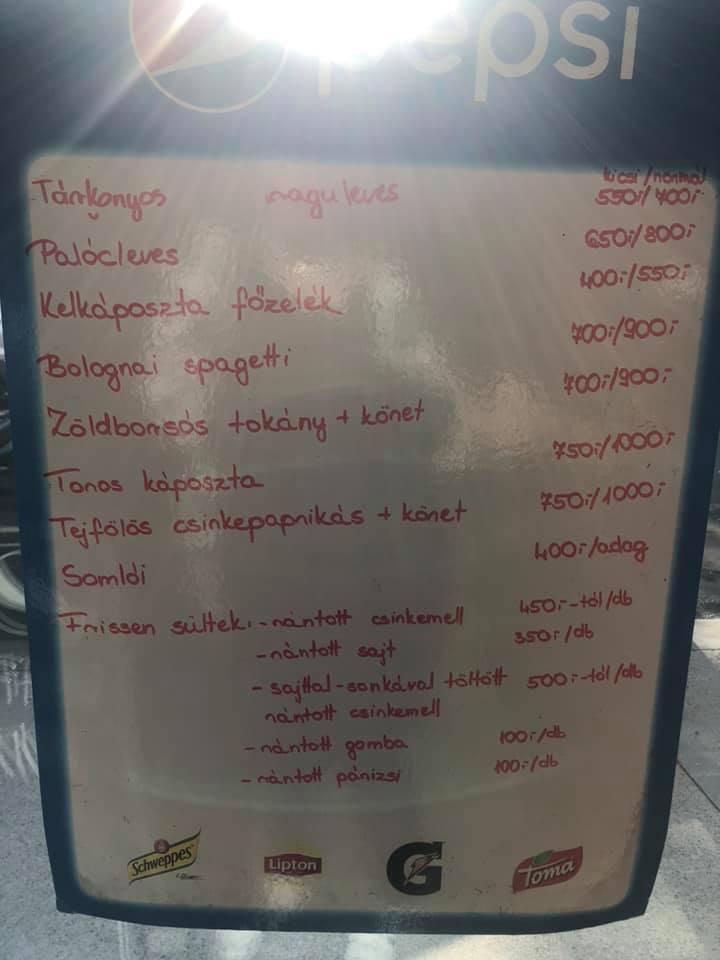 pepsi
kicsi/normál
Tárkonyos raguleves 550,-/700,-
Palócleves 650,-/800,-
Kelkáposzta főzelék 400,-/550,-
Bolognai spagetti 700,-/900,-
Zöldborsós tokány + köret 700,-/900,-
Toros káposzta 750,-/1000,-
Tejfölös csirkepaprikás + köret 750,-/1000,-
Somlói 400,-/adag
Frissen sültek: - rántott csirkemell 450,--tól/db
- rántott sajt 350,-/db
- sajttal-sonkával töltött 500,--tól/db
rántott csirkemell
- rántott gomba 100,-/db
- rántott párizsi 100,-/db
Schweppes Lipton G Toma